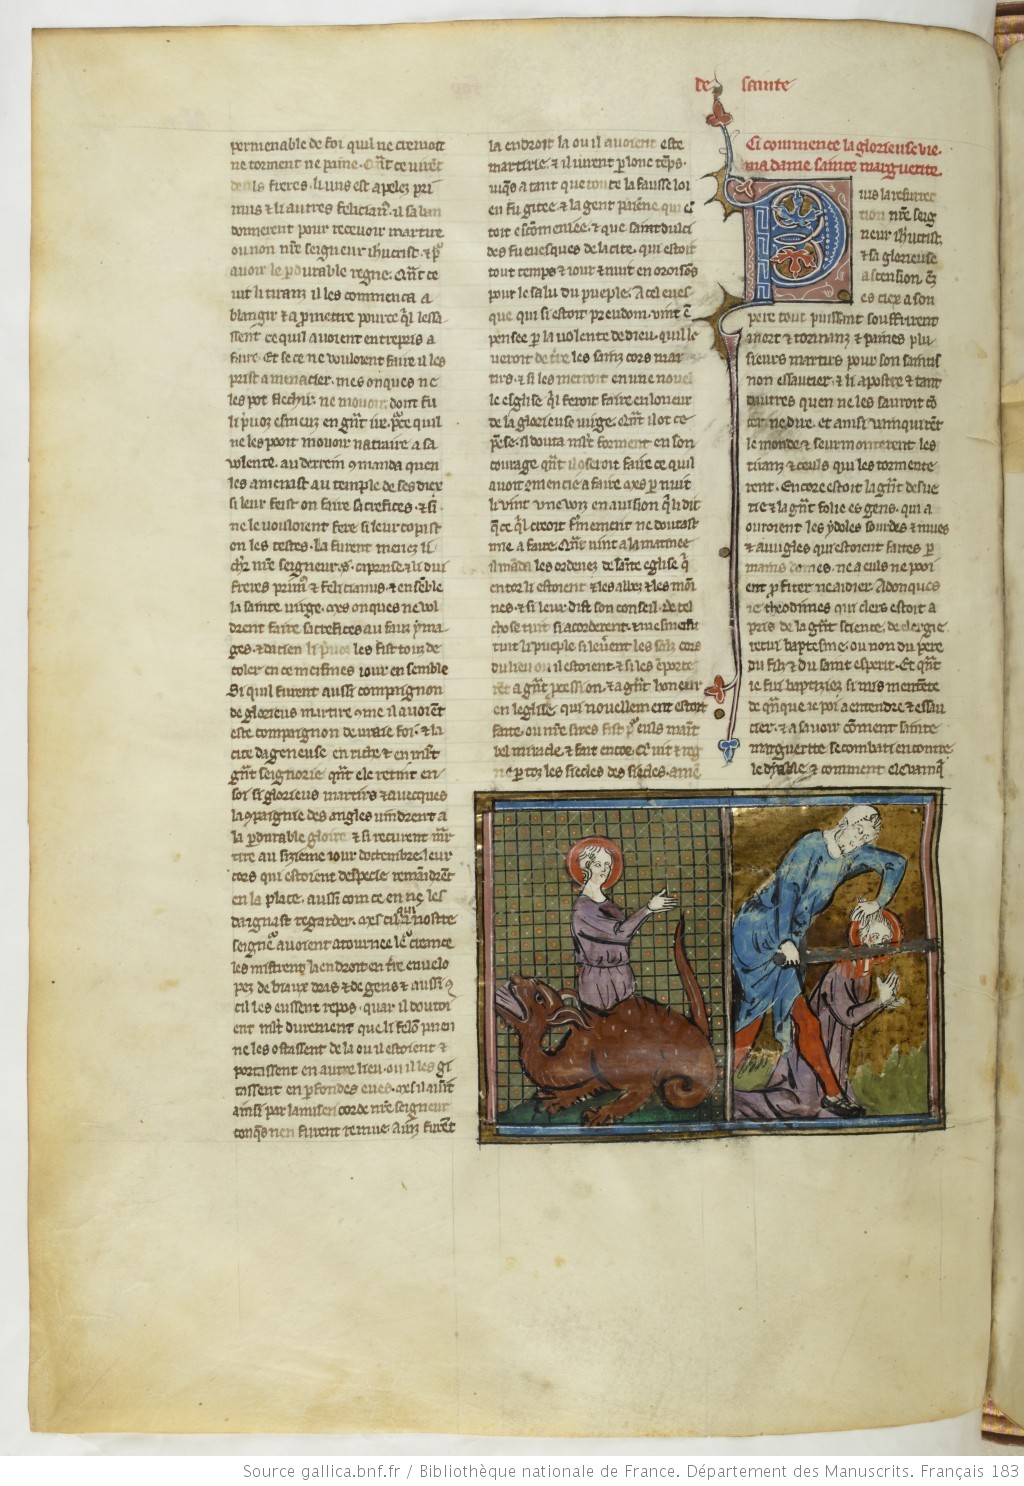 de sainte
permenable de foi quil ne cremoit
ne torment ne paine. Qnt ce virēt
li freres. li uns est apelez pri
mus & li autres felician⁹. il sa ban
donnerent pour recevoir martire
ou non nr̄e seigneur ihūcrist. & p̄
avoir le pdurable regne. Qnt ce
vit li tiranz il les commenca a
blangir & a pmettre pource q̄l lessa
ssent ce quil avoient entrepris a
faire. Et se ce ne vouloient faire il les
prist a menacier. mes onques ne
les pot flechir. ne movoir. dont fu
ne les pooit movoir na traire a sa
volente. au derrein 9manda quen
les amenast au temple de ses diex
si leur feist on faire sacrefices. & si
ne le vouloient fere si leur copist
on les testes. La furent menez li
freres prim⁹ & felicianus. & ensēble
la sainte virge. mes onques ne vol
drent faire sacrefices au faux yma
ges. & dacien li les fist touz de
coler en ce meismes iour en semble
Si quil furent aussi compaignon
de glorieus martire 9me il avoiēt
este compaignon de vraie foi. & la
cite dageneuse en riche & en
soi si glorieus martirs & avecques
la 9paignie des angles vindrent a
la pdurable gloire & si recurent mar
tire au sizieme iour doctembre. leur
cors qui estoient despecie remaindrēt
en la place. aussi com ce en ne les
daignast regarder.
seigneᵣ avoient atournee
les mistrent la endroit en tre envelo
pez de biaux dras & de gens & aussi q̄
cil les eussent repos. quar il doutoi
ent mlt durement que li felon paien
ne les ostassent de la ou il estoient &
portassent en autre lieu. ou il les gi
tassent en pfondes eves.
ainsi par la misericorde nr̄e seigneur
conq̄s nen furent remue.
la endroit la ou il avoient este
martirie. & il iurent p lonc tēps.
iusq̄s a tant que toute la fausse loi
en fu gitee. & la gent paiēne qui es
toit escōmeniee. & que saint dulci
des fu evesques de la cite. qui estoit
tout temps & iour & nuit en orisōs
pour le salu du pueple. A cel eves
que qui si estoit preudom. vint ē
pensee p la volente de dieu. quil le
veroit de tre les sainz cors mar
tirs. & si les metroit en une novel
le esglise q̄l feroit faire en loneur
de la glorieuse virge. Qnt il ot ce
pēse. il douta mlt forment en son
courage qnt il oseroit faire ce quil
avoit 9mencie a faire. mes p nuit
li vint une voiz en avision q̄ li dit
q̄ ce q̄l creoit fmement ne doutast
mie a faire. Qnt vint a la matinee
il manda les ordenez de sainte eglise q̄
entor li estoient & les abez & les moi
nes. & si leur dist son conseil. De tel
chose tuit si acorderent. & meismemēt
tuit li pueple si levēt les sainz cors
du lieu ou il estoient & si les ēporte
rēt a gnt pcession. & a gnt honeur
en leglise qui novellement estoit
faite. ou nr̄e sires fist p euls maīt
bel miracle. & fait encore. Qui vit & reg
ne p toz les siecles des siecles. amē
Ci commence la glorieuse vie.
ma dame sainte marguerite.
Puis la resurrec
tion nr̄e seig
neur ihūcrist.
& sa glorieuse
ascension. ē
es ciex a son
pere tout puissant souffrirent
mort & tormanz & paines plu
sieurs martirs pour son saintis
non essaucier. & li apostre & tant
dautres quen ne les sauroit cō
ter ne dire. et ainsi vainquirēt
le monde & seurmonterent les
tiranz & ceuls qui les tormente
rent. Encore estoit la gnt desve
rie & la gnt folie es gens. qui a
ouroient les ydoles sourdes & mues
& avugles qui estoient faites p
mains domes. ne a euls ne pooi
ent pfiter ne aidier. Adonques
ie theodimes qui clers estoit a
pris de la gnt science. de clergie.
recui baptesme. ou non du pere
du filz & du saint esperit. Et qnt
ie fui baptiziez si mis mentēte
de qnque ie poi a entendre & essau
cier. & a savoir cōment sainte
marguerite se combati encontre
le dyable. & comment ele vainq̄
Source gallica.bnf.fr / Bibliothèque nationale de France. Département des Manuscrits. Français 183